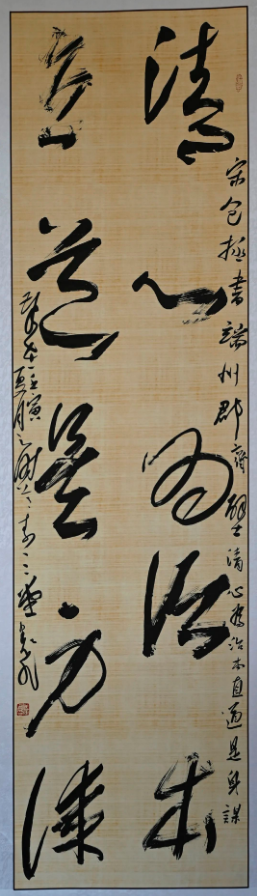 宋包拯書端州郡齋壁清心為治本直道是身謀
清心為治本
直道是身謀
歲在壬寅
夏月